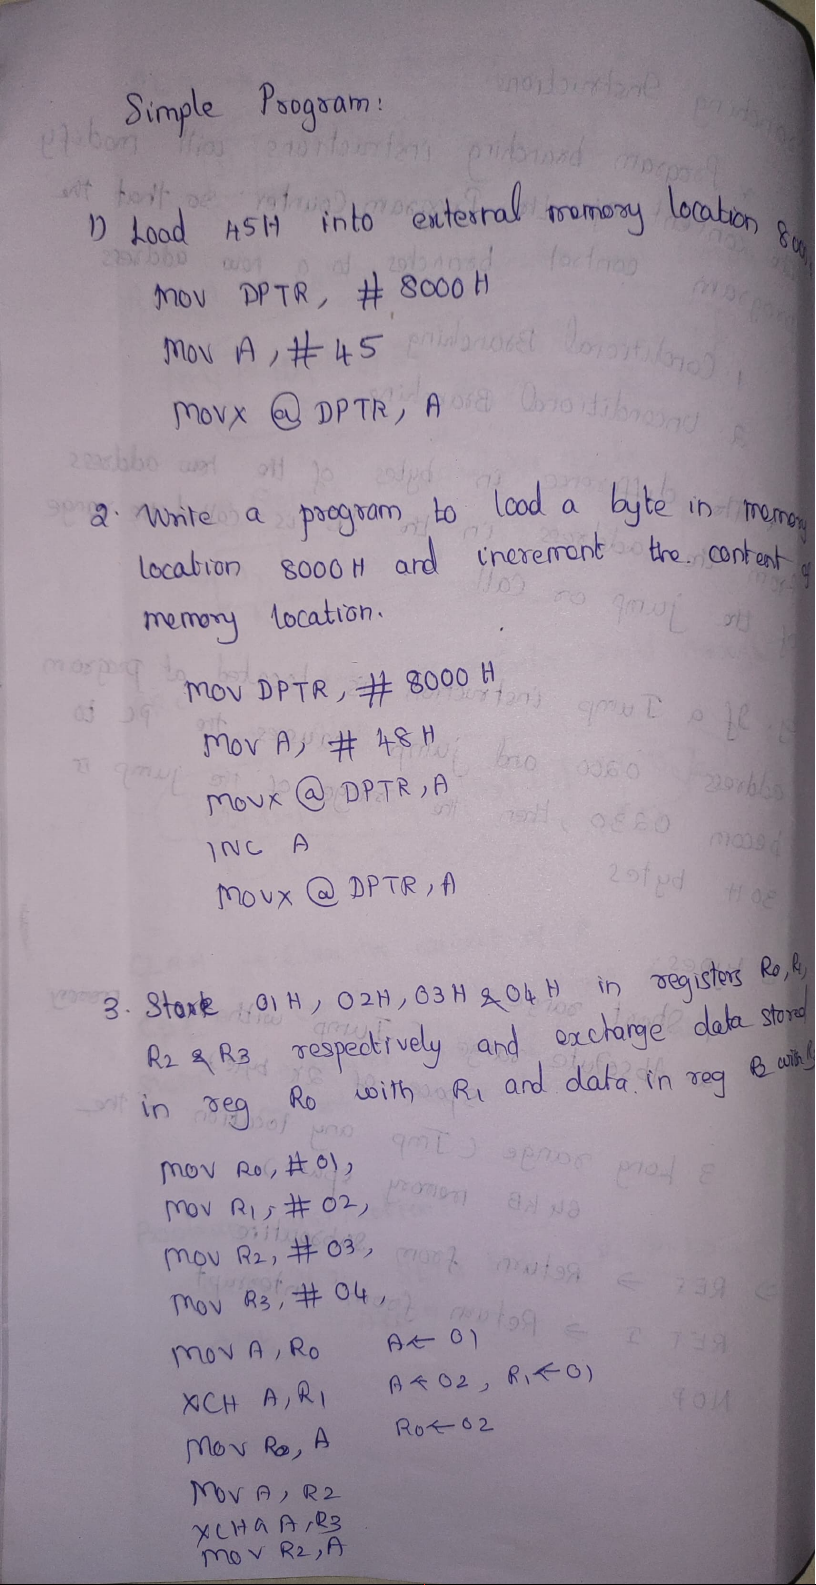 Simple Program:
1) Load 45H into external memory location
MOV DPTR, # 8000 H
MOV A, # 45
MOVX @ DPTR, A
2. Write a program to load a byte in memory
location 8000 H and increment the content of
memory location.
MOV DPTR, # 8000 H
MOV A, # 48 H
MOVX @ DPTR, A
INC A
MOVX @ DPTR, A
3. Store 01 H, 02H, 03 H & 04 H in registers R0, R1,
R2 & R3 respectively and exchange data stored
in reg R0 with R1 and data in reg R2 with
MOV R0, # 01,
MOV R1, # 02,
MOV R2, # 03,
MOV R3, # 04,
MOV A, R0 A ← 01
XCH A, R1 A ← 02, R1 ← 01
MOV R0, A R0 ← 02
MOV A, R2
XCHG A, R3
MOV R2, A